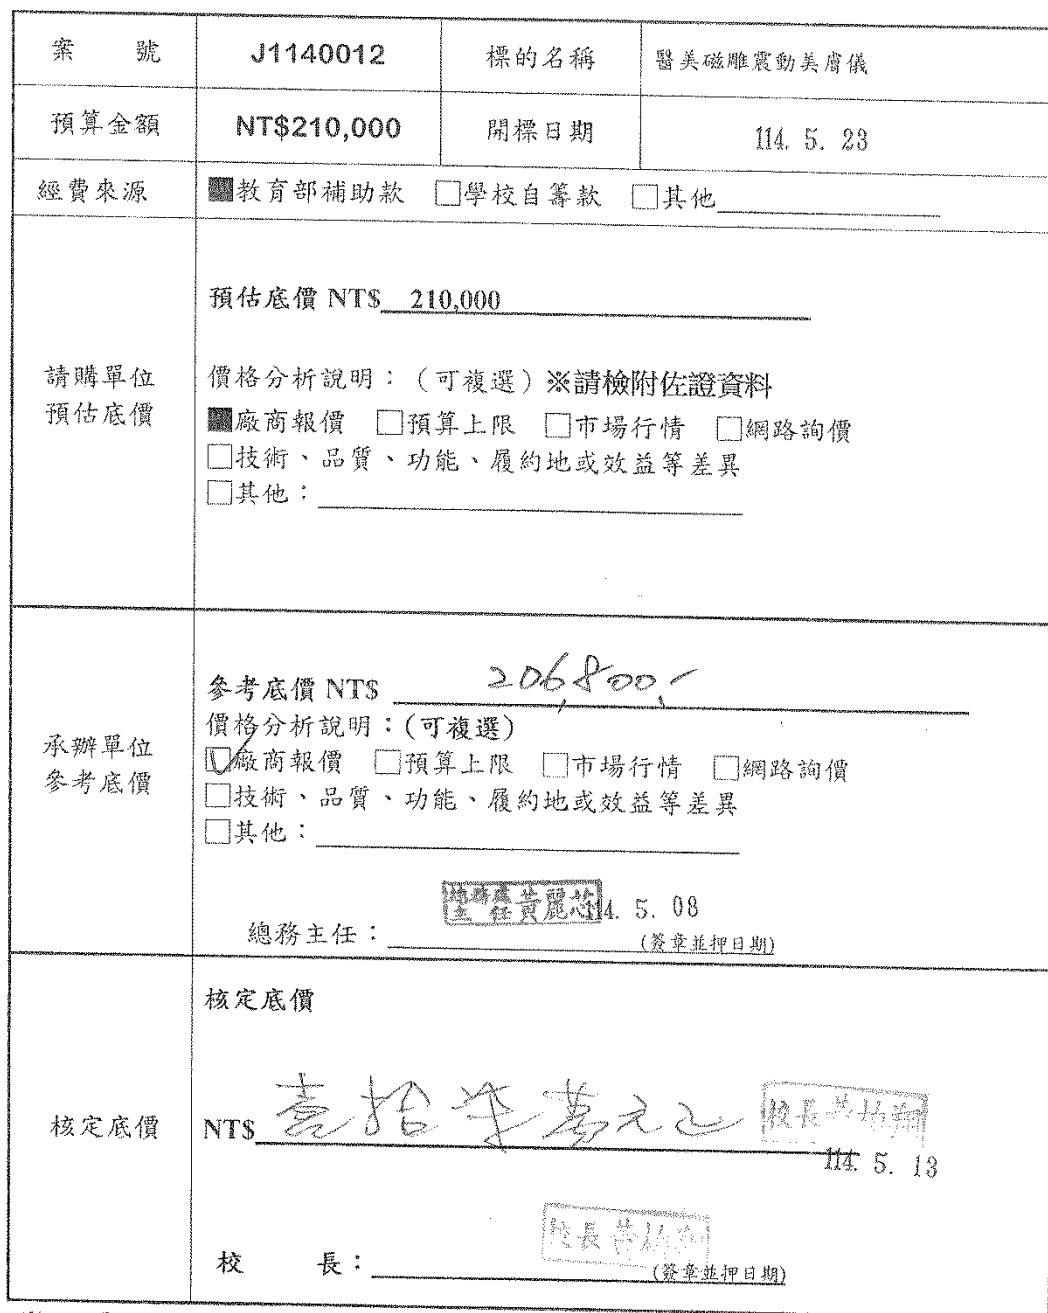 案 號 J1140012 標的名稱 醫美磁雕震動美膚儀
預算金額 NT$210,000 開標日期 114. 5. 23
經費來源 ■教育部補助款 □學校自籌款 □其他
請購單位
預估底價
預估底價 NT$ 210,000
價格分析說明：（可複選）※請檢附佐證資料
■廠商報價 □預算上限 □市場行情 □網路詢價
□技術、品質、功能、履約地或效益等差異
□其他：
承辦單位
參考底價
參考底價 NT$ 206,800,-
價格分析說明：(可複選)
☑廠商報價 □預算上限 □市場行情 □網路詢價
□技術、品質、功能、履約地或效益等差異
□其他：
總務處
主任 黃麗芯 114. 5. 08
總務主任：
(簽章並押日期)
核定底價
核定底價
NT$ 壹拾柒萬元正 校長
114. 5. 13
校長
校 長：
(簽章並押日期)